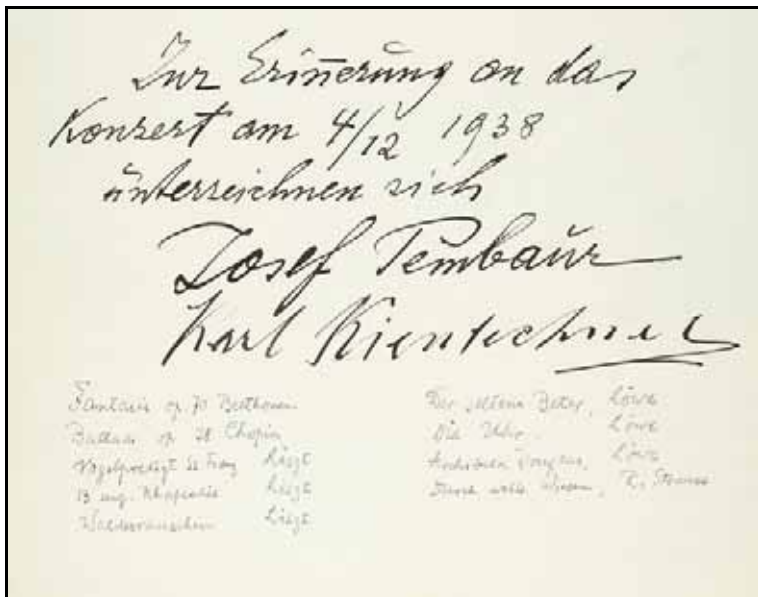 Zur Erinnerung an das
Konzert am 4/12 1938
unterzeichnen sich
Josef Pembaur
Karl
Fantasie op. Beethoven
Ballade op. Chopin
Vogelpredigt Liszt
13 ung. Rhapsodie Liszt
Waldesrauschen Liszt
Der seltene Beter, Löwe
Die Uhr, Löwe
Archibald Douglas, Löwe
R. Strauss